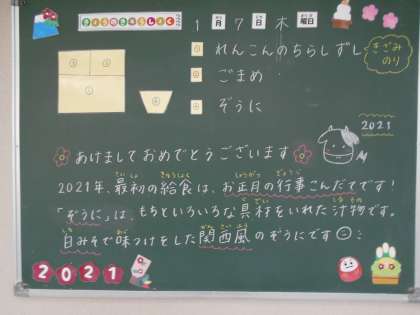 きょうのきゅうしょく
1月7日木曜日
① れんこんのちらしずし
きざみのり
② ごまめ
③ ぞうに
① ② ③
2021
あけましておめでとうございます
2021年、最初の給食は、お正月の行事こんだてです!
「ぞうに」は、もちといろいろな具材をいれた汁物です。
白みそで味つけをした関西風のぞうにです
2021